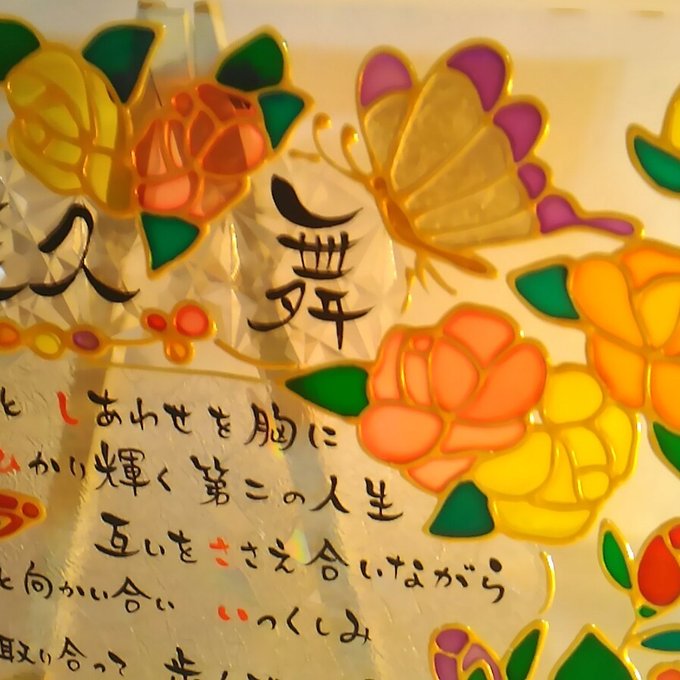 久 舞
と しあわせを胸に
ひかり輝く 第二の人生
互いを ささえ合いながら
と向かい合い いつくしみ
取り合って 歩